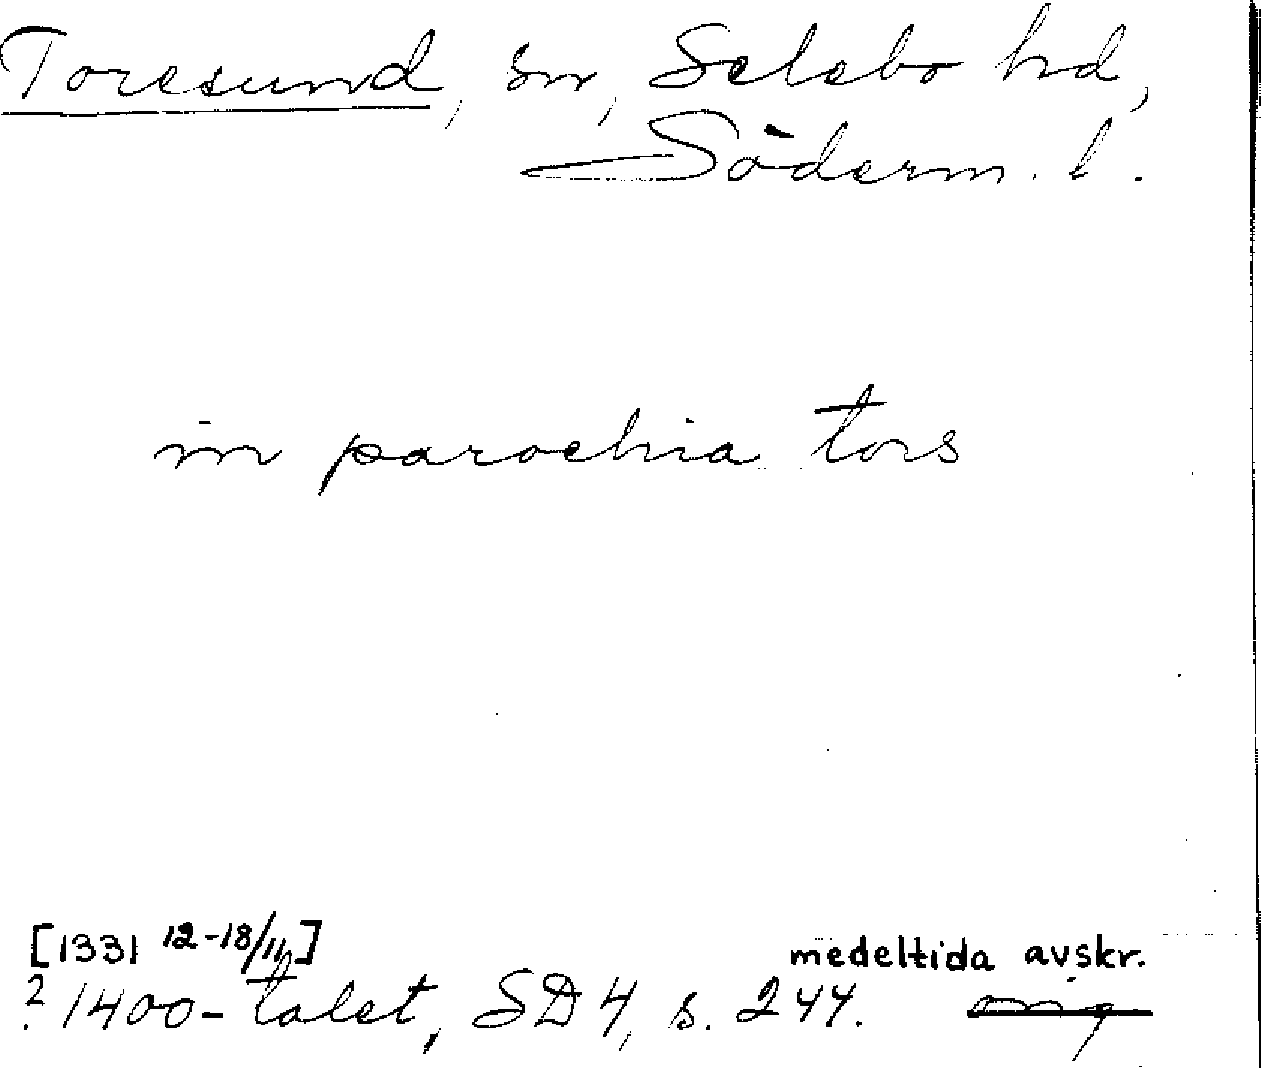 Toresund, sn, Selebo hd,
Söderm. l.
in parochia tors
[1331 12-18/11]
medeltida avskr.
? 1400-talet, SD 4, s. 244. orig